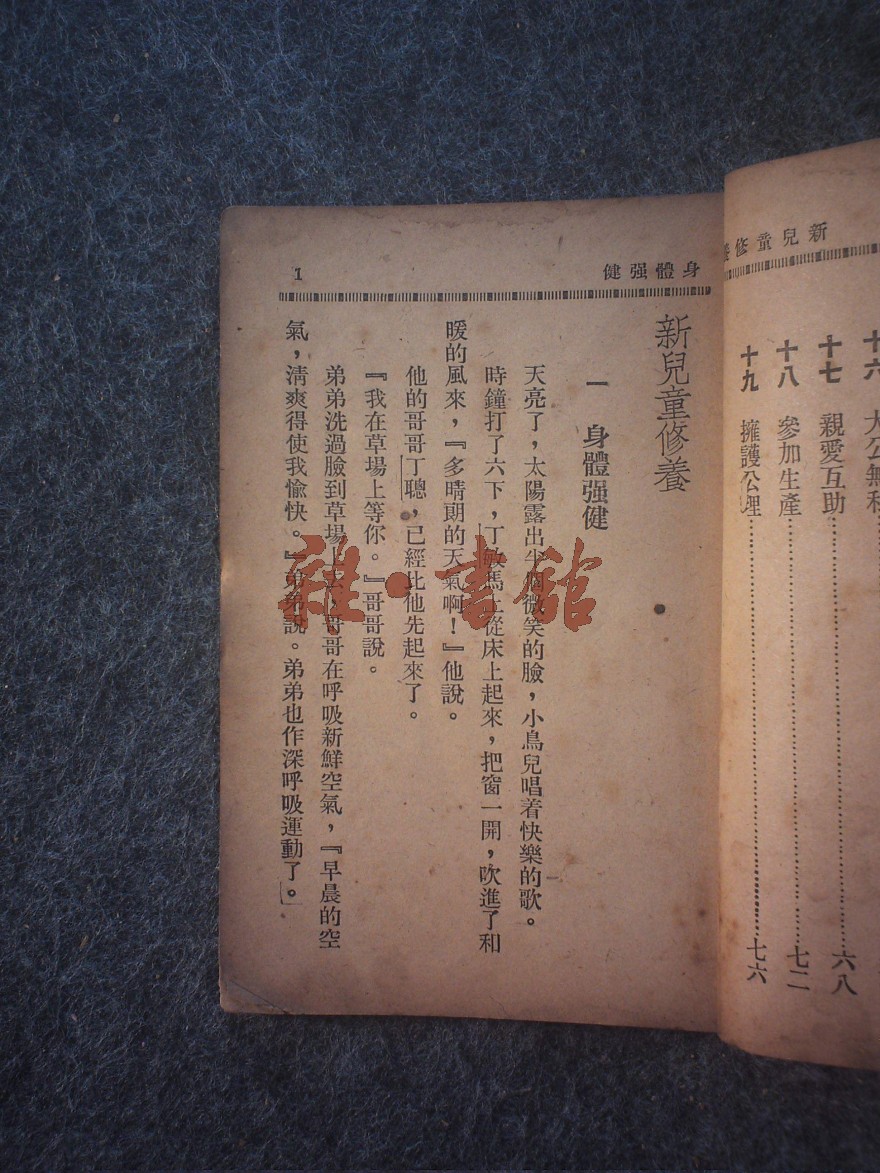 新兒童修養
十六 大公無私
十七 親愛互助 六八
十八 參加生產 七二
十九 擁護公理 七六
身體强健 1
新兒童修養
一 身體强健
天亮了，太陽露出半個微笑的臉，小鳥兒唱着快樂的歌。
時鐘打了六下，丁敏馬上從床上起來，把窗一開，吹進了和
暖的風來，『多晴朗的天氣啊！』他說。
他的哥哥丁聰，已經比他先起來了。
『我在草場上等你。』哥哥說。
弟弟洗過臉到草場上去，哥哥在呼吸新鮮空氣，『早晨的空
氣，清爽得使我愉快。』弟弟說。弟弟也作深呼吸運動了。
雜·書館